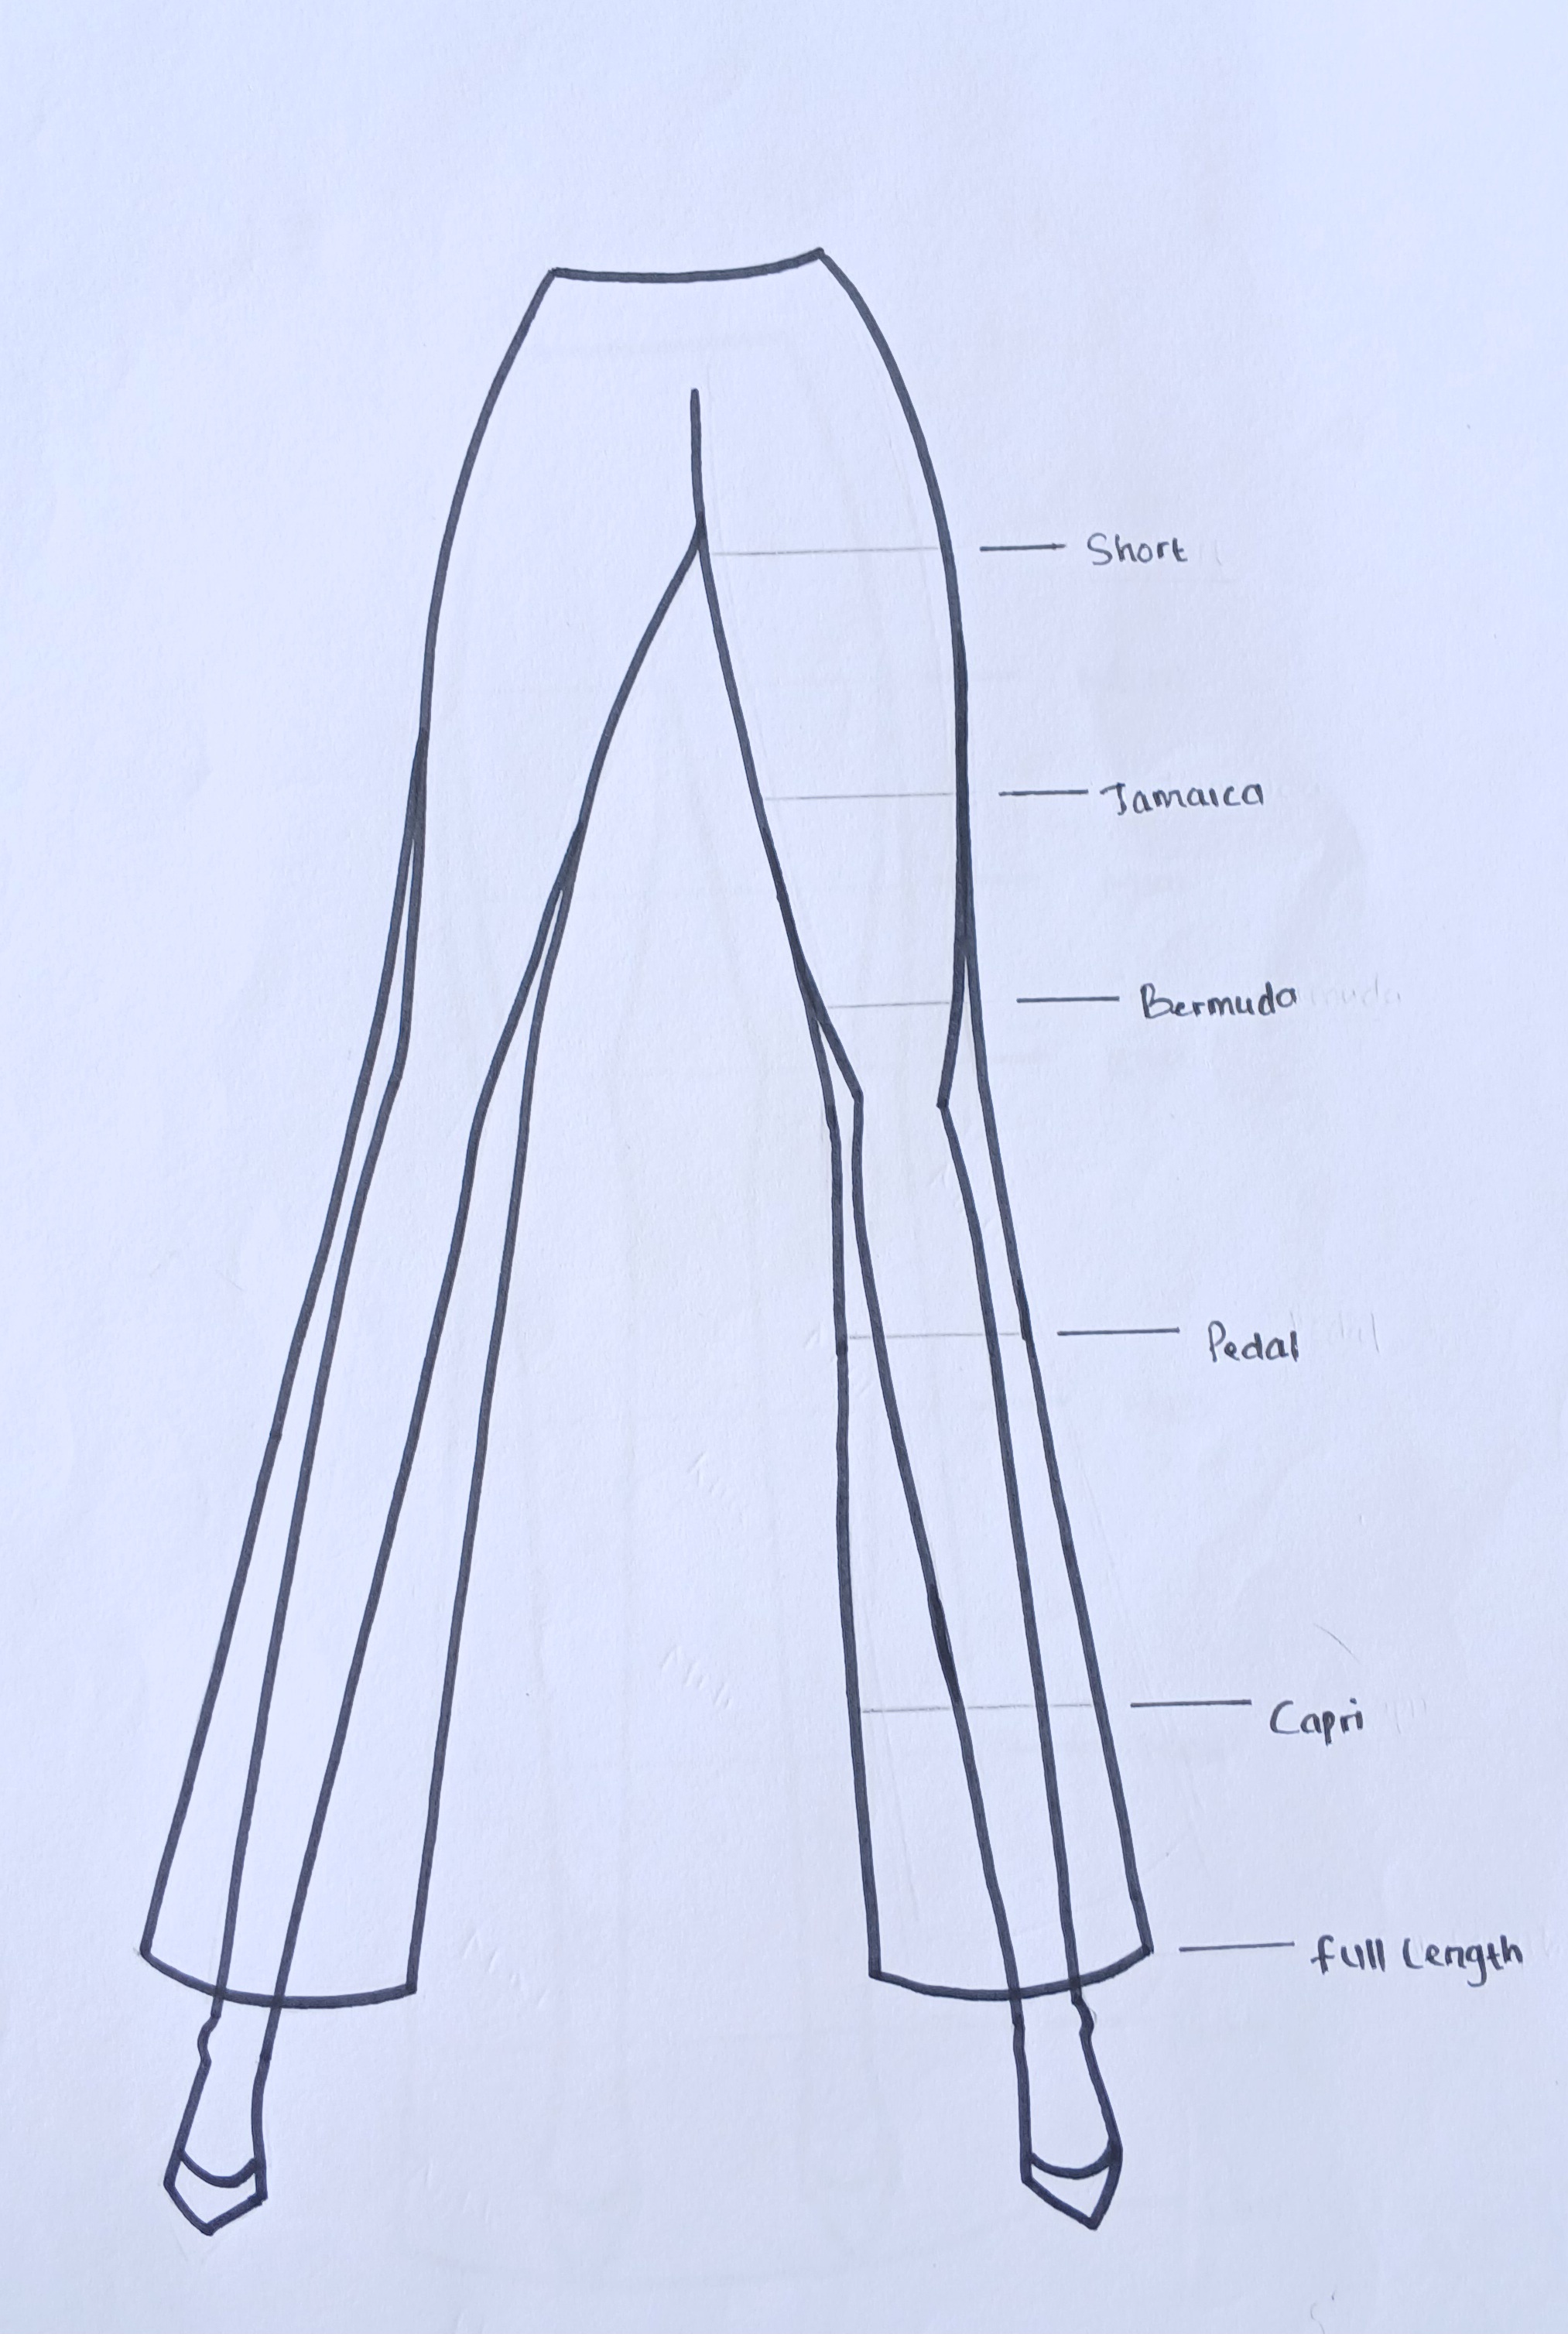 Short
Jamaica
Bermuda
Pedal
Capri
full Length